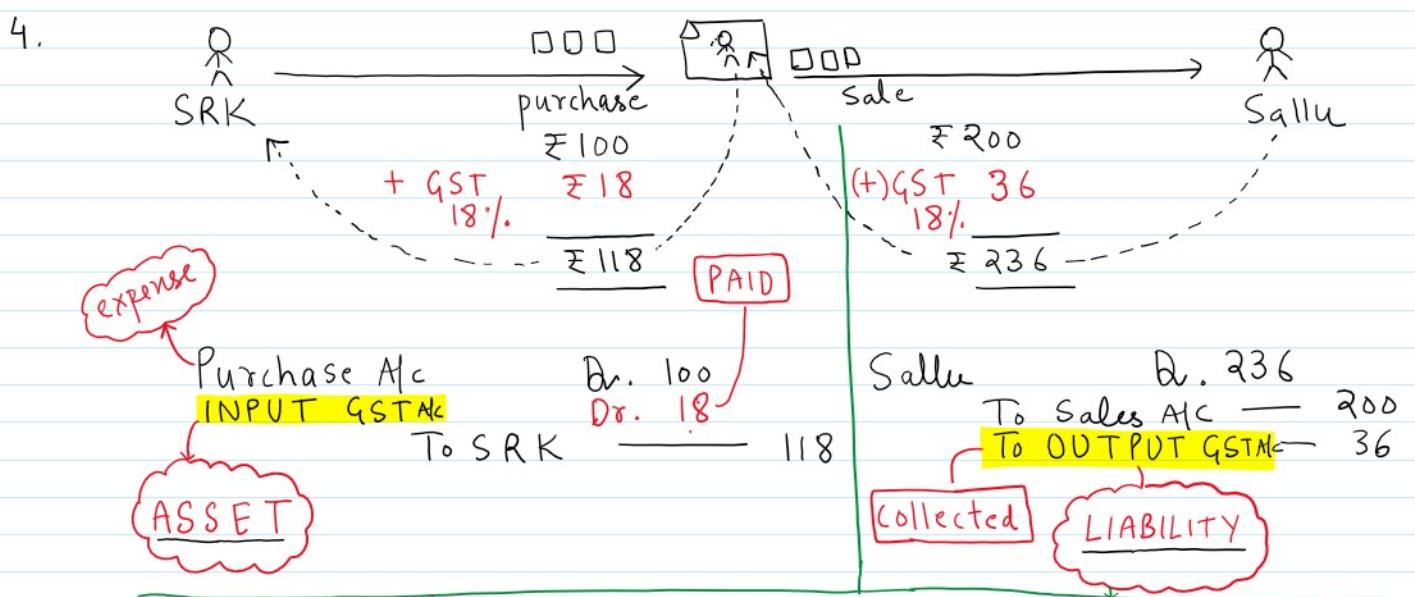 4.
SRK
purchase
₹100
+ GST ₹18
18%
₹118
sale
₹200
(+) GST 36
18%
₹ 236
Sallu
expense
PAID
Purchase A/c Dr. 100
INPUT GST A/c Dr. 18
To SRK 118
ASSET
Sallu Dr. 236
To Sales A/c — 200
To OUTPUT GST A/c — 36
Collected
LIABILITY